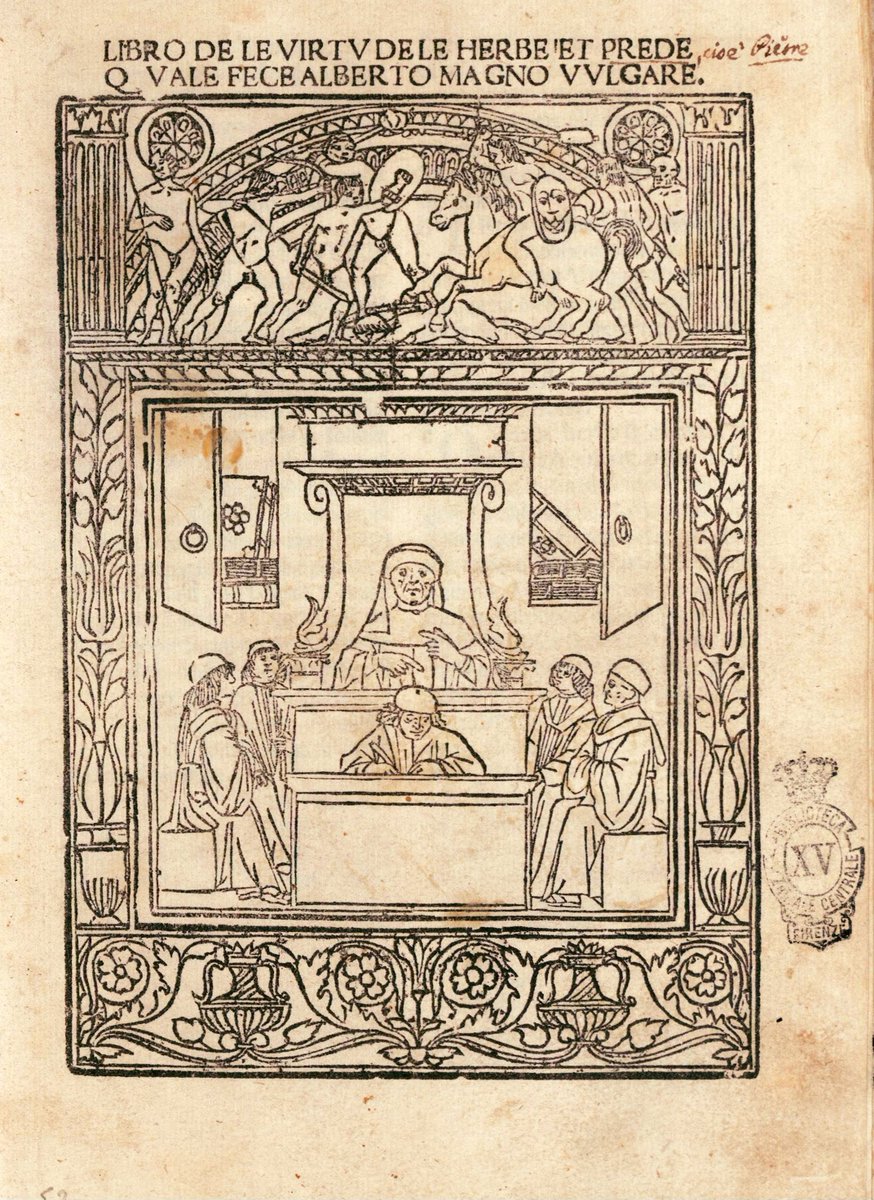 LIBRO DE LE VIRTV DE LE HERBE ET PREDE, cioè Pietre
Q VALE FECE ALBERTO MAGNO VVLGARE.
BIBLIOTECA
NAZIONALE CENTRALE
XV
FIRENZE